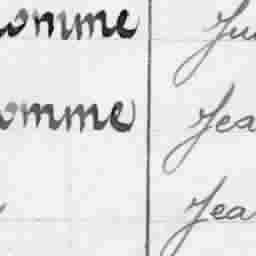 omme Ju
omme Jea
Jea